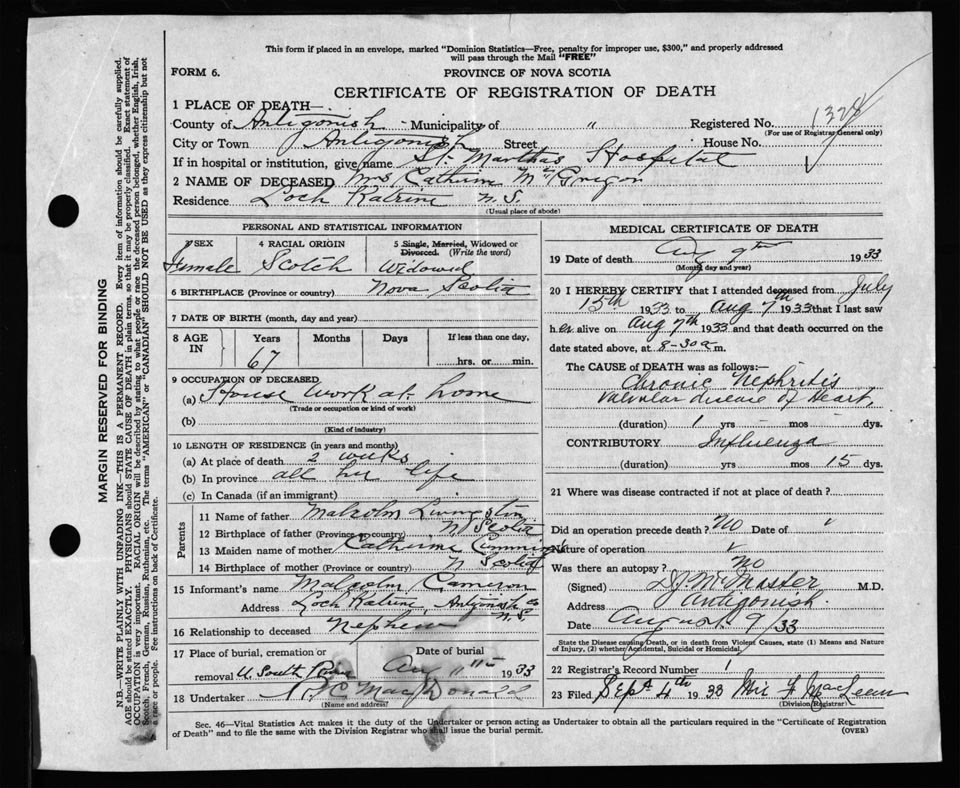 This form if placed in an envelope, marked "Dominion Statistics—Free, penalty for improper use, $300," and properly addressed
will pass through the Mail "FREE"
FORM 6.
PROVINCE OF NOVA SCOTIA
CERTIFICATE OF REGISTRATION OF DEATH
MARGIN RESERVED FOR BINDING
N.B.—WRITE PLAINLY WITH UNFADING INK—THIS IS A PERMANENT RECORD. Every item of information should be carefully supplied.
AGE should be stated EXACTLY. PHYSICIANS should STATE CAUSE OF DEATH in plain terms, so that it may be properly classified. Exact statement of
OCCUPATION is very important. RACIAL ORIGIN will be described by stating to what people or race the deceased person belonged, whether English, Irish,
Scotch, French, German, Russian, Ruthenian, etc. The terms "AMERICAN" or "CANADIAN" SHOULD NOT BE USED as they express citizenship but not
a race or people. See instructions on back of Certificate.
1 PLACE OF DEATH—
County of Antigonish Municipality of " Registered No. 1324
(For use of Registrar General only)
City or Town Antigonish Street House No.
If in hospital or institution, give name St. Marthas Hospital
2 NAME OF DECEASED Mrs Catherine McGregor
Residence Loch Katrine N.S.
(Usual place of abode)
PERSONAL AND STATISTICAL INFORMATION
3 SEX 4 RACIAL ORIGIN 5 Single, Married, Widowed or Divorced. (Write the word)
Female Scotch Widowed
6 BIRTHPLACE (Province or country) Nova Scotia
7 DATE OF BIRTH (month, day and year)
8 AGE IN Years Months Days If less than one day,
67 hrs. or min.
9 OCCUPATION OF DECEASED
(a) House work at home
(Trade or occupation or kind of work)
(b)
(Kind of industry)
10 LENGTH OF RESIDENCE (in years and months)
(a) At place of death 2 weeks
(b) In province all her life
(c) In Canada (if an immigrant)
Parents
11 Name of father Malcolm Livingston
12 Birthplace of father (Province or country) N Scotia
13 Maiden name of mother Catherine
14 Birthplace of mother (Province or country) N Scotia
15 Informant's name Malcolm Cameron
Address Loch Katrine, Antigonish Co N.S.
16 Relationship to deceased Nephew
17 Place of burial, cremation or removal Date of burial
South Aug 11th 1933
18 Undertaker MacDonald
(Name and address)
MEDICAL CERTIFICATE OF DEATH
19 Date of death Aug 9th 1933
(Month, day and year)
20 I HEREBY CERTIFY that I attended deceased from July
15th 1933 to Aug 7th 1933 that I last saw
her alive on Aug 7th 1933 and that death occurred on the
date stated above, at 8-30 a m.
The CAUSE of DEATH was as follows:—
Chronic Nephritis
Valvular disease of Heart,
(duration) 1 yrs mos dys.
CONTRIBUTORY Influenza
(duration) yrs mos 15 dys.
21 Where was disease contracted if not at place of death?
Did an operation precede death? No Date of "
Nature of operation "
Was there an autopsy? No
(Signed) McMaster M.D.
Address Antigonish.
Date August 9/33
State the Disease causing Death, or in death from Violent Causes, state (1) Means and Nature
of Injury, (2) whether Accidental, Suicidal or Homicidal.
22 Registrar's Record Number 1
23 Filed Sept 4th 1933 MacLean
(Division Registrar)
Sec. 46—Vital Statistics Act makes it the duty of the Undertaker or person acting as Undertaker to obtain all the particulars required in the "Certificate of Registration
of Death" and to file the same with the Division Registrar who shall issue the burial permit.
(OVER)